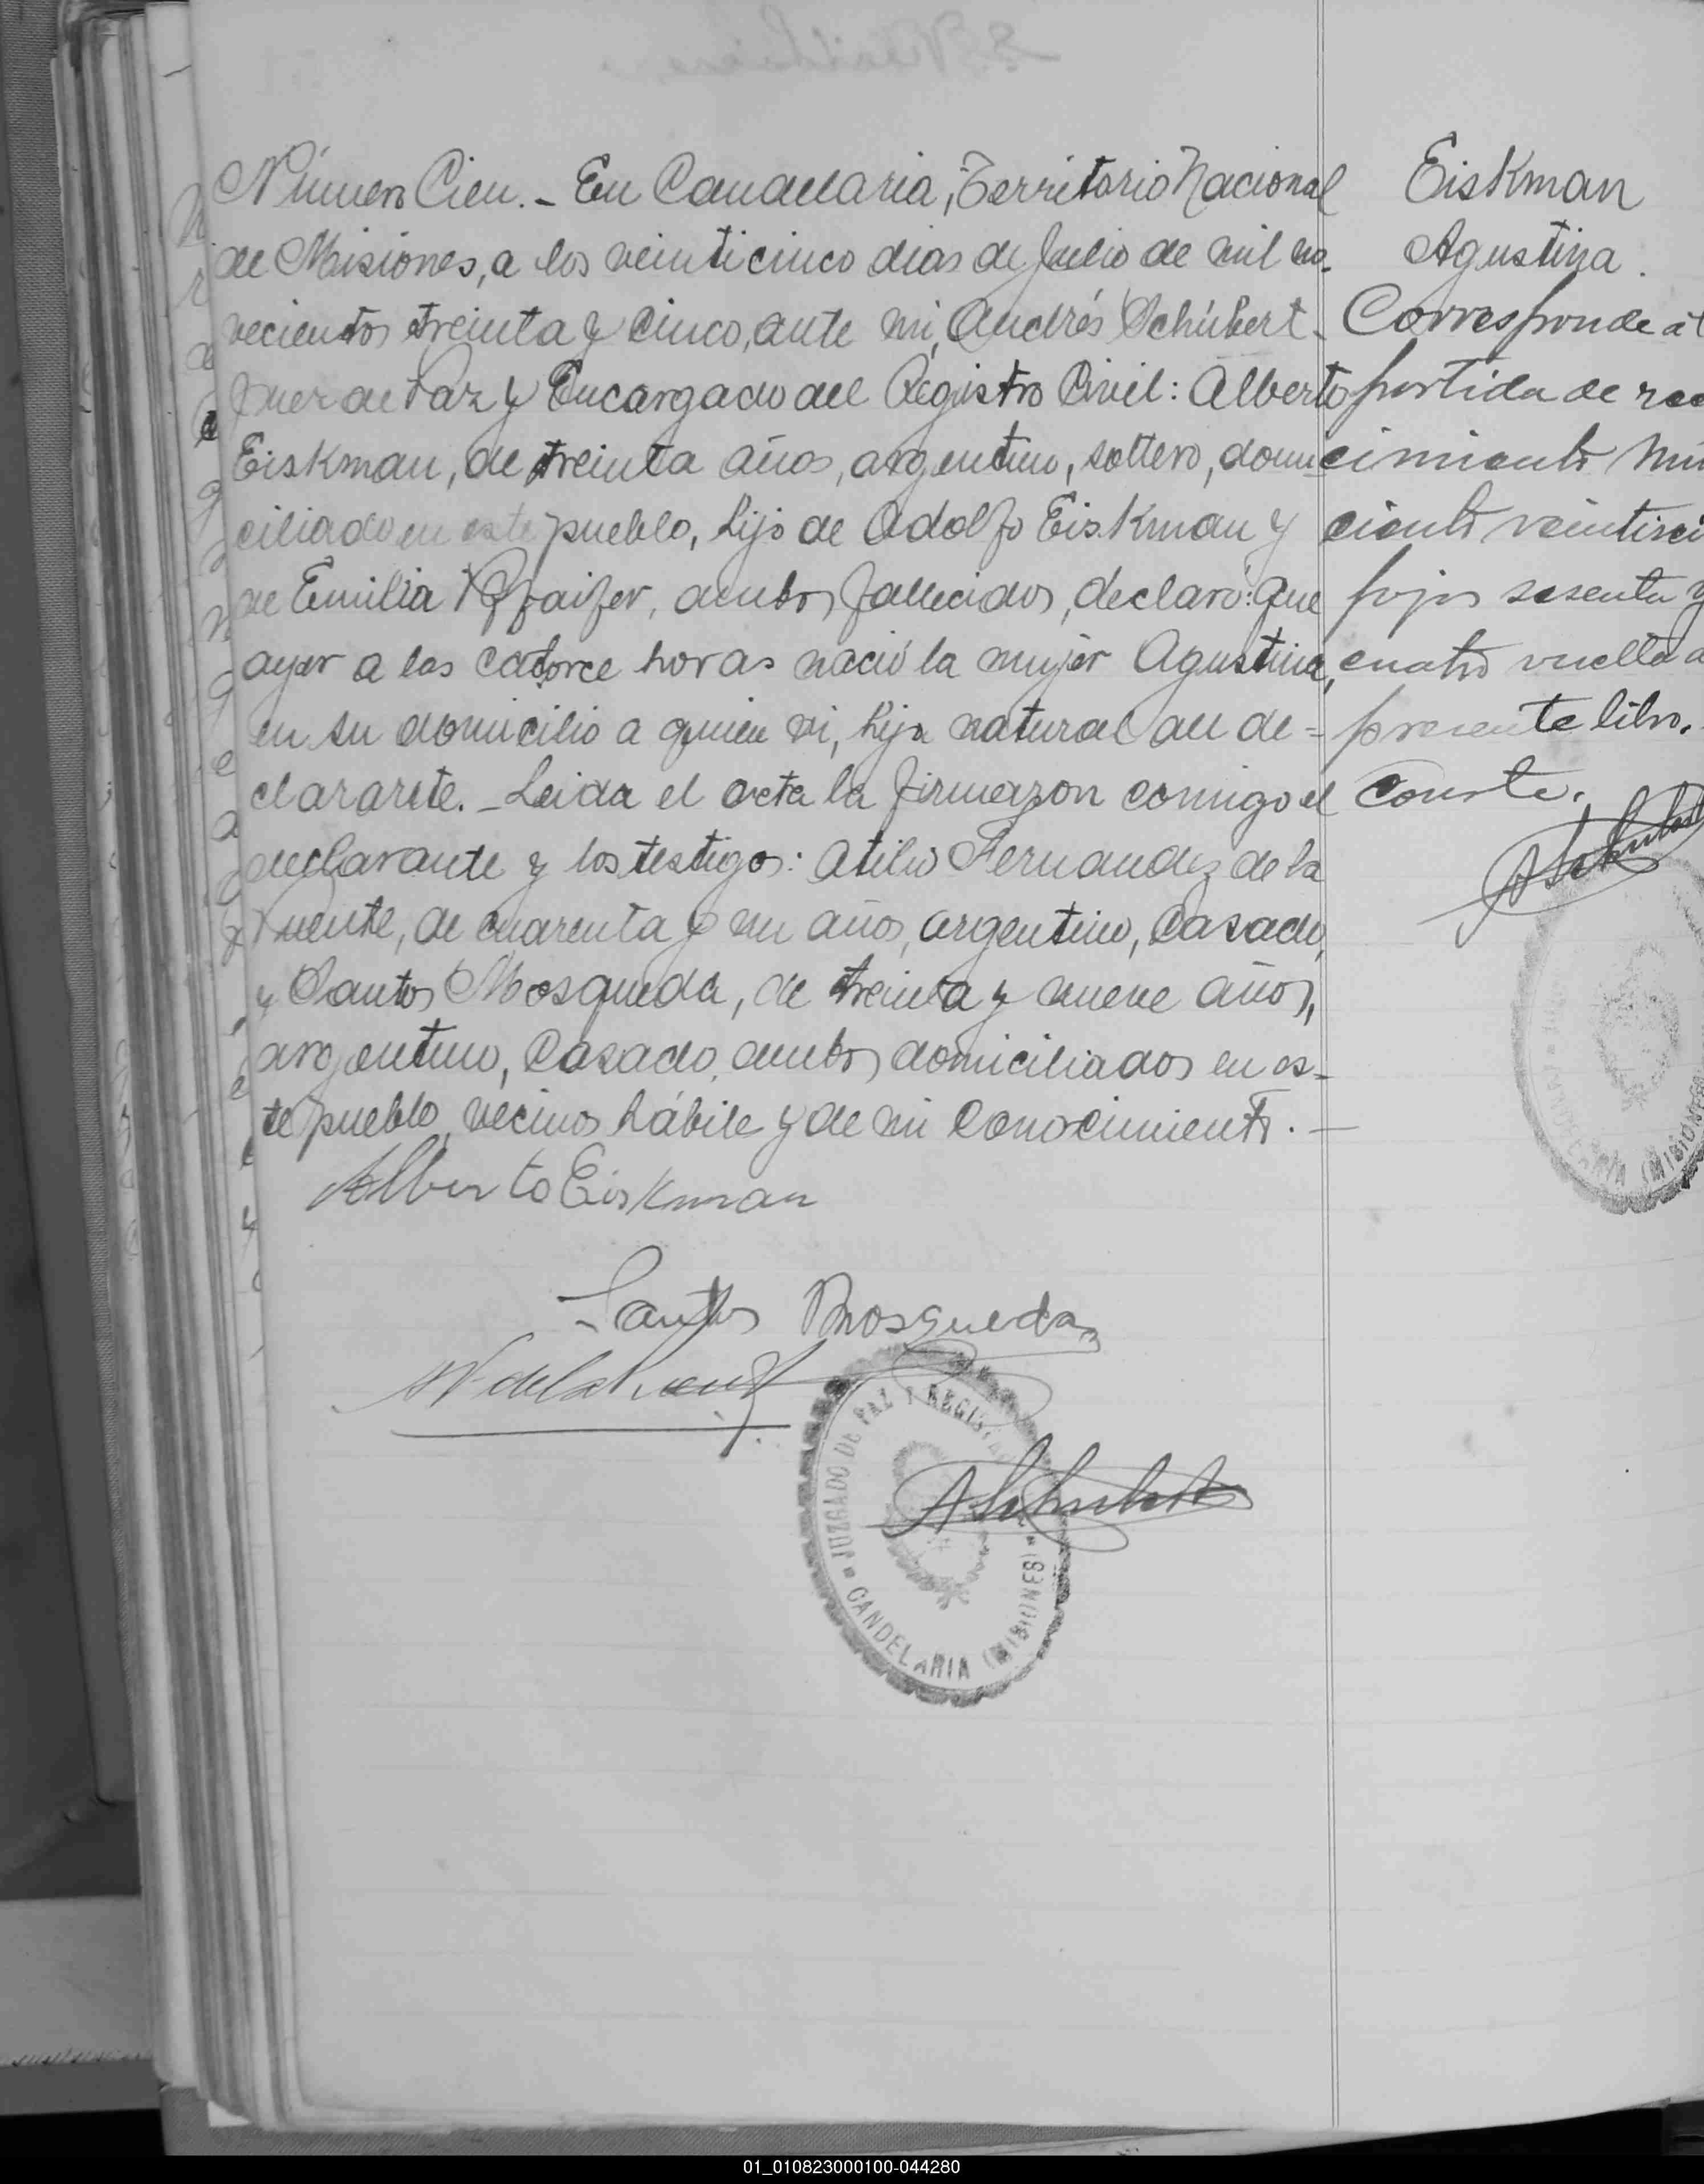 Número Cien. - En Candelaria, Territorio Nacional
de Misiones, a los veinticinco dias de Julio de mil no-
vecientos treinta y cinco, ante mi, Andrés Schúbert -
Juez de Paz y Encargado del Registro Civil: Alberto
Eiskman, de treinta años, argentino, soltero, domi-
ciliado en este pueblo, hijo de Adolfo Eiskman y
de Emilia Pfaifer, ambos fallecidos, declaró: Que
ayer a las catorce horas nació la mujer Agustina,
en su domicilio a quien vi, hija natural del de=
clarante. - Leida el acta la firmaron comigo el
declarante y los testigos: Atilio Fernandez de la
Puente, de cuarenta y un años, argentino, casado,
y Santos Mosqueda, de treinta y nueve años,
argentino, casado, ambos domiciliados en es-
te pueblo, vecinos hábile y de mi conocimiento. -
Alberto Eiskman
Santos Mosqueda
A Schubert
JUZGADO DE PAZ Y REGIS
CANDELARIA (MISIONES)
Eiskman
Agustina.
Corresponde a
partida de rec
cimiento
ciento
fojas sesenta y
cuatro vuelta d
presente libro.
Conste.
A Schubert
CANDELARIA (MISIONES
01_010823000100-044280